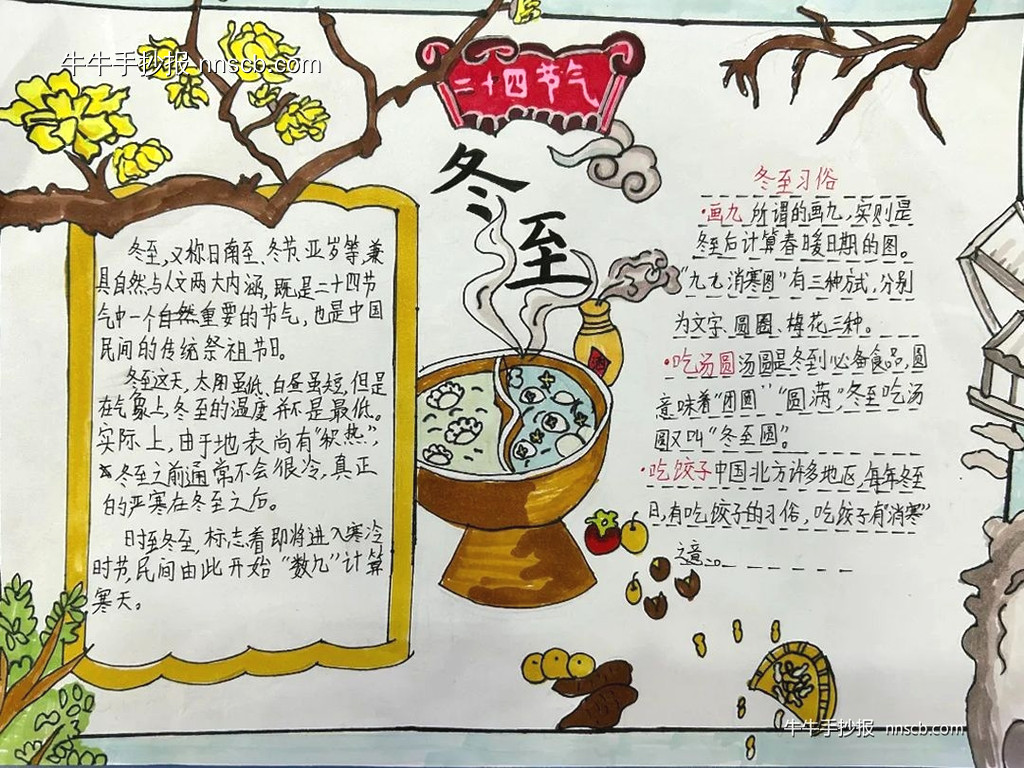 牛牛手抄报 nnscb.com
二十四节气
冬至
冬至,又称日南至、冬节、亚岁等,兼
具自然与人文两大内涵,既是二十四节
气中一个自然重要的节气,也是中国
民间的传统祭祖节日。
冬至这天,太阳虽低、白昼虽短,但是
在气象上,冬至的温度并不是最低。
实际上,由于地表尚有“积热”,
冬至之前通常不会很冷,真正
的严寒在冬至之后。
时至冬至,标志着即将进入寒冷
时节,民间由此开始“数九”计算
寒天。
冬至习俗
·画九 所谓的画九,实则是
冬至后计算春暖日期的图。
“九九消寒图”有三种方式,分别
为文字、圆圈、梅花三种。
·吃汤圆 汤圆是冬至必备食品,圆
意味着“团圆”“圆满”,冬至吃汤
圆又叫“冬至圆”。
·吃饺子 中国北方许多地区,每年冬至
日,有吃饺子的习俗,吃饺子有“消寒”
之意。
牛牛手抄报 nnscb.com